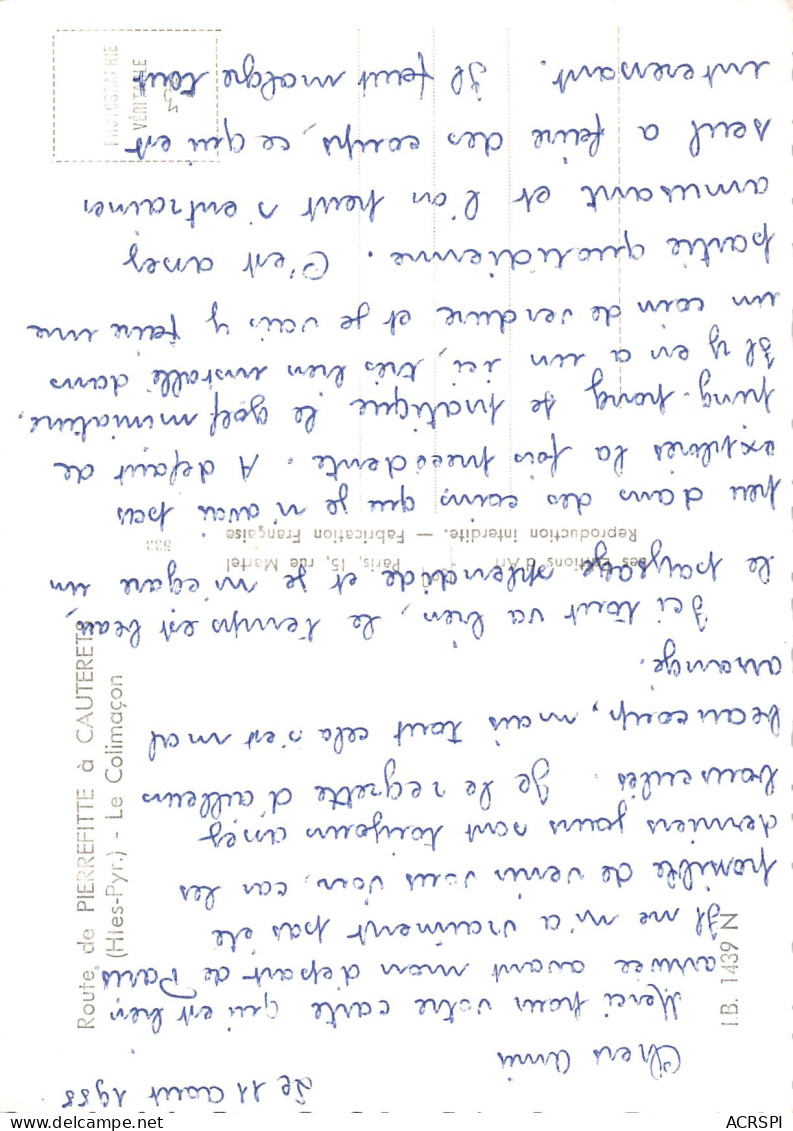 Le 11 août 1958
Chers amis
Merci pour votre carte qui est bien
arrivée avant mon départ de Paris
Il ne m'a vraiment pas été
possible de venir vous voir, car les
derniers jours sont toujours assez
bousculés. Je le regrette d'ailleurs
beaucoup, mais tout cela s'est mal
arrangé.
Ici tout va bien, le temps est beau,
le paysage splendide et je m'égare un
peu dans des coins que je n'avais pas
explorés la fois précédente. A défaut de
ping-pong je pratique le golf miniature.
Il y en a un ici, très bien installé dans
un coin de verdure et je vais y faire une
partie quotidienne. C'est assez
amusant et l'on peut s'entrainer
seul a faire des coups, ce qui est
interessant. Il faut malgré tout
Route de PIERREFITTE à CAUTERETS
(Htes-Pyr.) - Le Colimaçon
I.B. 1439 N
Les Editions d'Art Paris, 15, rue Martel
Reproduction interdite. — Fabrication Française
533
PHOTOGRAPHIE
VÉRITABLE
ACRSPI